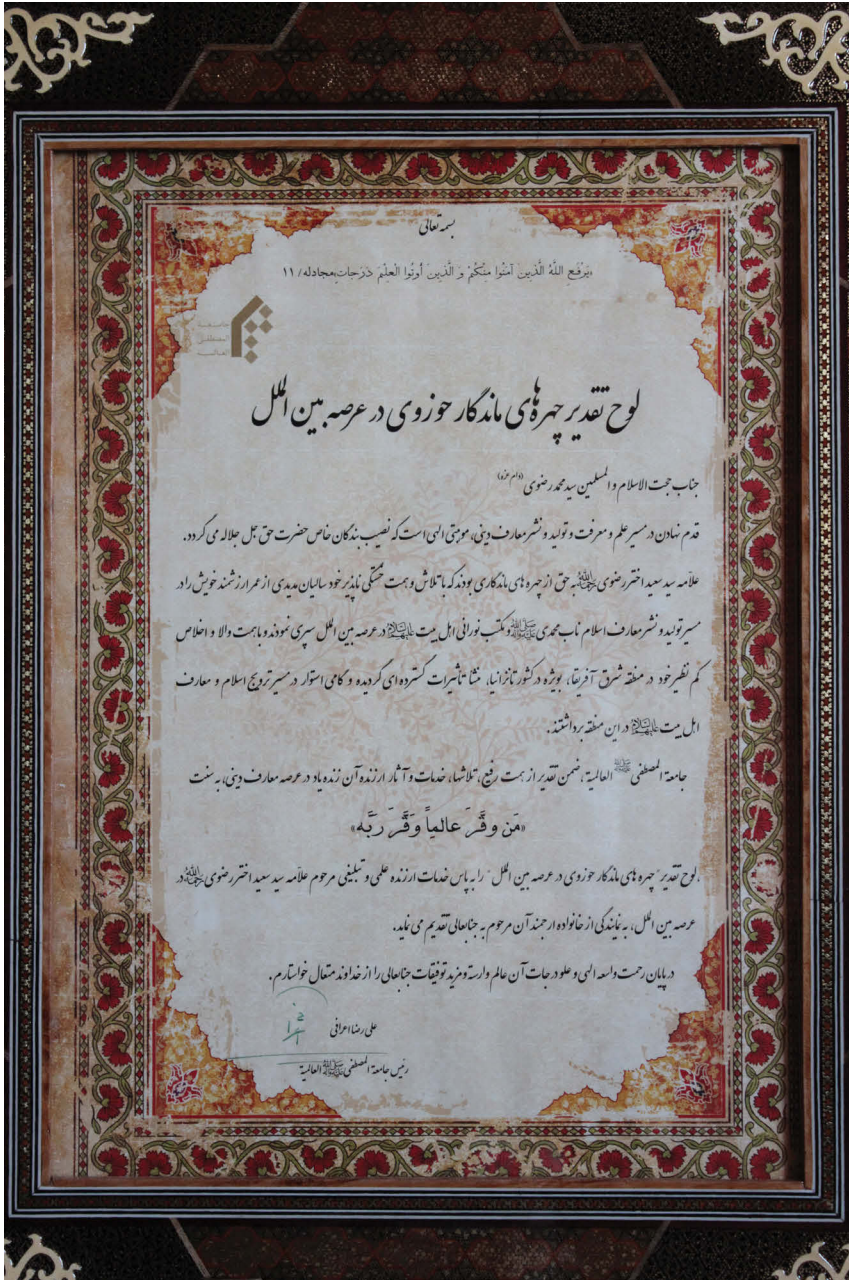 بسمه تعالی
«یَرْفَعِ اللَّهُ الَّذینَ آمَنُوا مِنْکُمْ وَ الَّذینَ أُوتُوا الْعِلْمَ دَرَجات» مجادله/ ۱۱
جامعة
المصطفی
العالمیة
لوح تقدیر چهره های ماندگار حوزوی در عرصه بین الملل
جناب حجت الاسلام و المسلمین سید محمد رضوی (دام عزه)
قدم نهادن در مسیر علم و معرفت و تولید و نشر معارف دینی، موهبتی الهی است که نصیب بندگان خاص حضرت حق جل جلاله می گردد.
علامه سید سعید اختر رضوی رحمه الله به حق از چهره های ماندگاری بودند که با تلاش و همت خستگی ناپذیر خود سالیان مدیدی از عمر ارزشمند خویش را در
مسیر تولید و نشر معارف اسلام ناب محمدی ﷺ و مکتب نورانی اهل بیت علیهم السلام در عرصه بین الملل سپری نمودند و با همت والا و اخلاص
کم نظیر خود در منطقه شرق آفریقا، بویژه در کشور تانزانیا، منشا تأثیرات گسترده ای گردیده و گامی استوار در مسیر ترویج اسلام و معارف
اهل بیت علیهم السلام در این منطقه برداشتند.
جامعة المصطفی ﷺ العالمیة، ضمن تقدیر از همت رفیع، تلاشها، خدمات و آثار ارزنده آن زنده یاد در عرصه معارف دینی، به سنت
«مَن وقَّرَ عالِماً وَقَّرَ رَبَّه»
لوح تقدیر "چهره های ماندگار حوزوی در عرصه بین الملل" را به پاس خدمات ارزنده علمی و تبلیغی مرحوم علامه سید سعید اختر رضوی رحمه الله در
عرصه بین الملل، به نمایندگی از خانواده ارجمند آن مرحوم به جنابعالی تقدیم می نماید.
در پایان رحمت واسعه الهی و علو درجات آن عالم وارسته و مزید توفیقات جنابعالی را از خداوند متعال خواستارم.
علی رضا اعرافی
رئیس جامعة المصطفی ﷺ العالمیة